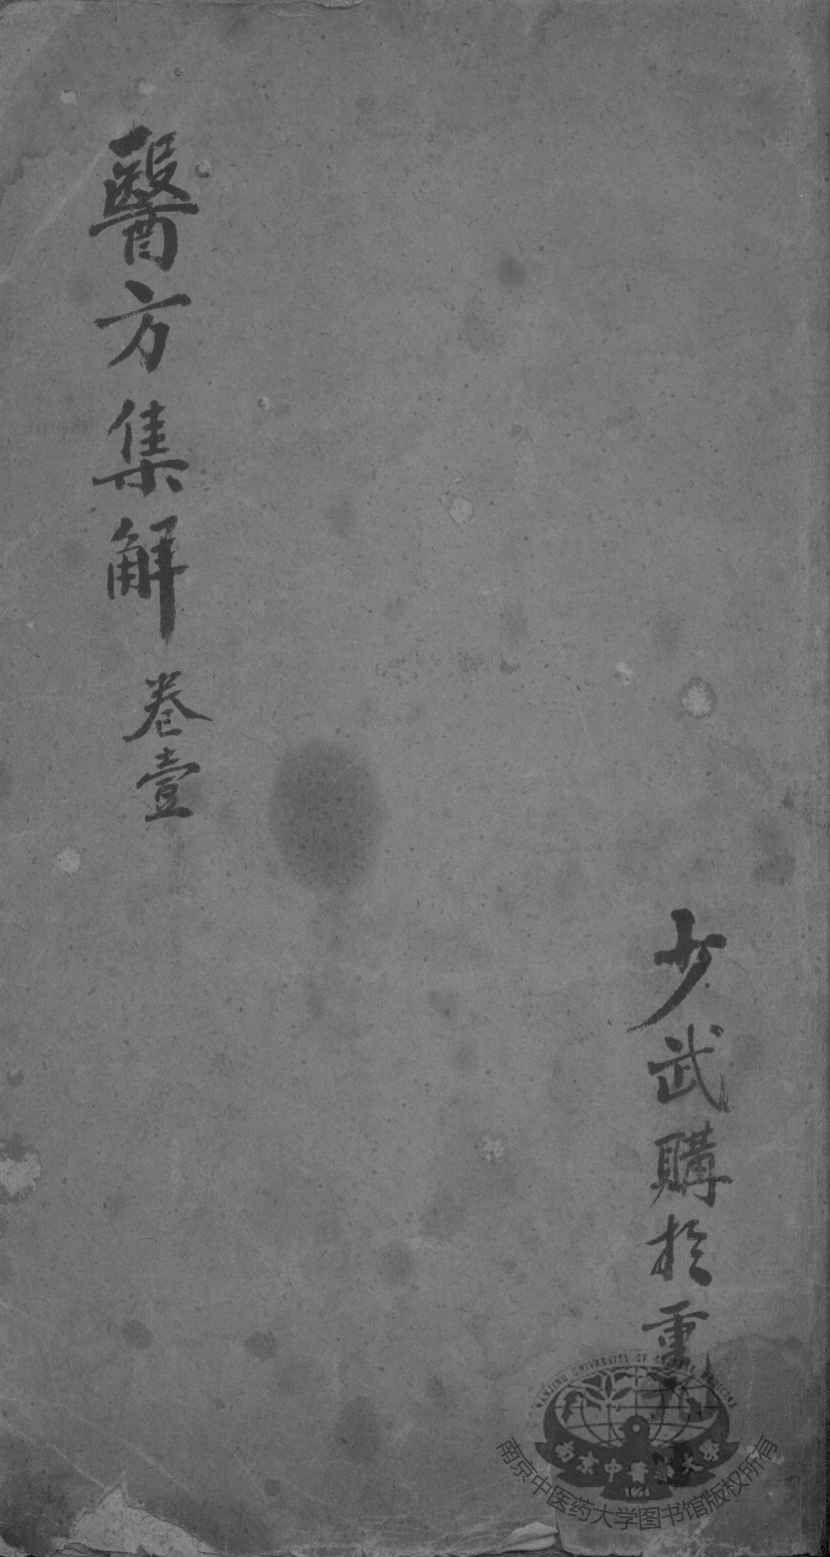 少武購於重
醫方集解 卷壹
NANJING UNIVERSITY OF CHINESE MEDICINE
南京中醫藥大學
南京中医药大学图书馆版权所有